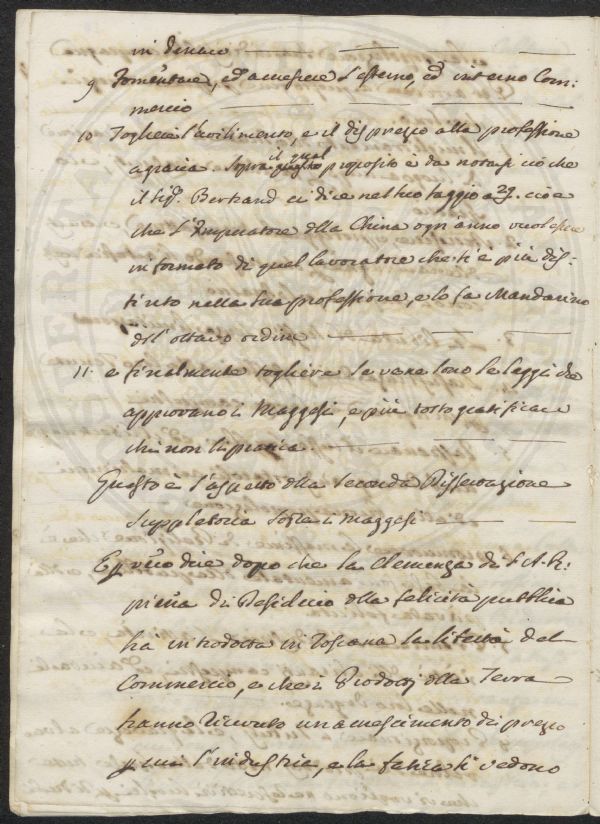 in denaro
9 Fomentare, ed accrescere l'esterno, ed interno Com:
mercio
10 Togliere l'avilimento, e il disprezzo alla professione
agraria. Sopra il qual proposito è da notarsi ciò che
il Sig.r Bertrand ci dice nel suo Saggio a 29. cioè
che l'Imperatore della China ogni anno vuol essere
informato di quel lavoratore che si è più dis-
tinto nella sua professione, e lo fa Mandarino
dell'ottavo ordine
11. e finalmente togliere se vene sono le Leggi che
approvano i Maggesi, e più tosto gratificare
chi non li pratica.
Questo è l'aspetto della seconda Dissertazione
suppletoria sopra i maggesi
E per vero dire dopo che la clemenza di S. A. R.
piena di Desiderio della felicità pubblica
ha introdotta in Toscana la libertà del
Commercio, e che i Prodotti della Terra
hanno ricevuto un accrescimento di prezzo
per cui l'industria, e la fatica si vedono